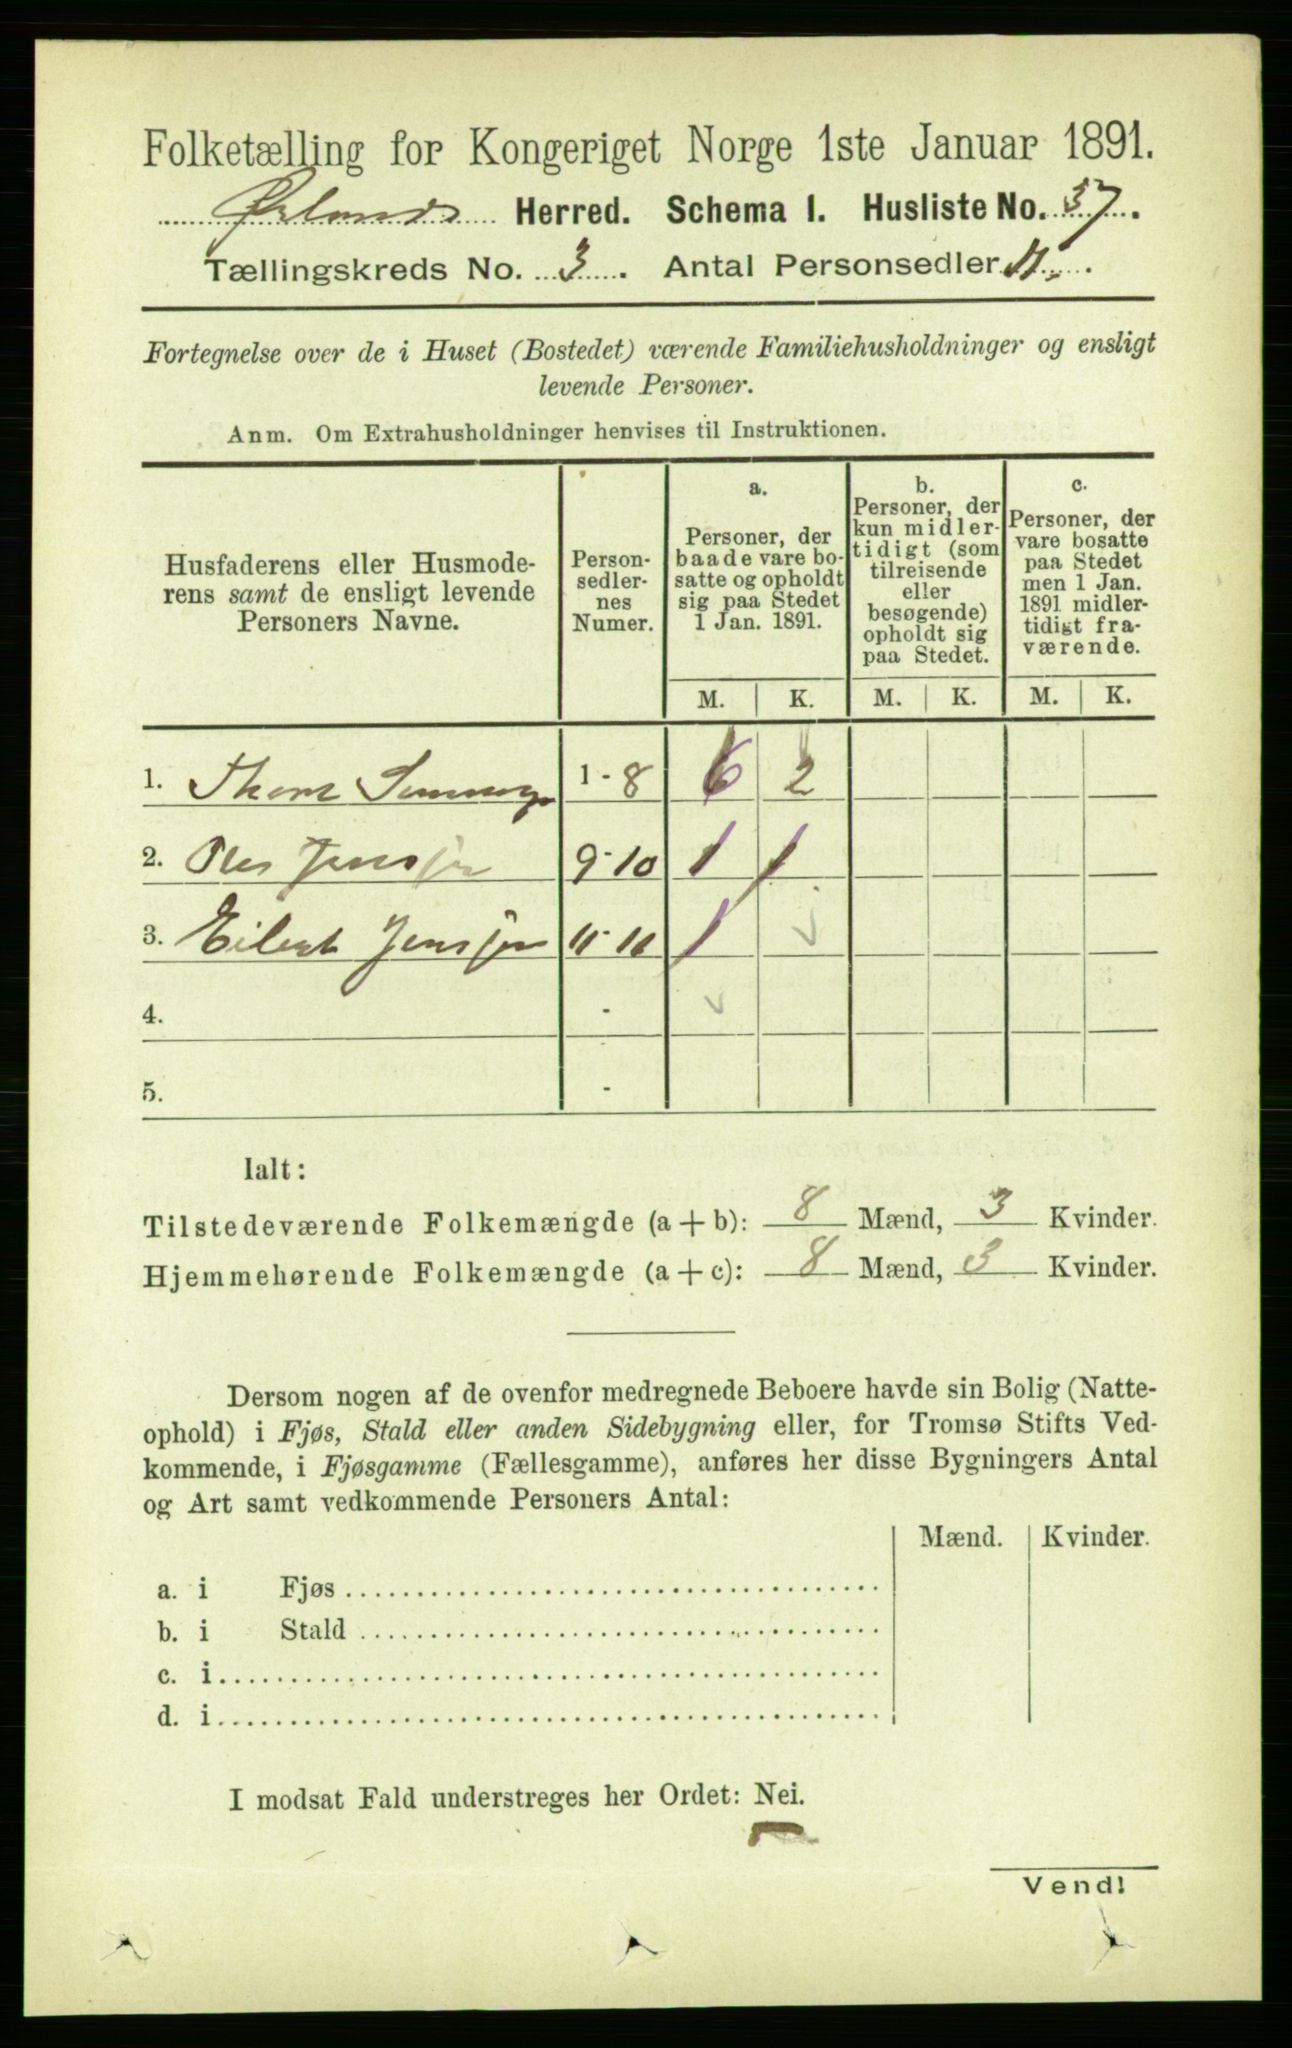 Folketælling for Kongeriget Norge 1ste Januar 1891.
Ørlands Herred. Schema I. Husliste No. 37.
Tællingskreds No. 3. Antal Personsedler 11.
Fortegnelse over de i Huset (Bostedet) værende Familiehusholdninger og ensligt
levende Personer.
Anm. Om Extrahusholdninger henvises til Instruktionen.
Husfaderens eller Husmode-
rens samt de ensligt levende
Personers Navne.
Person-
sedler-
nes
Numer.
a.
Personer, der
baade vare bo-
satte og opholdt
sig paa Stedet
1 Jan. 1891.
b.
Personer, der
kun midler-
tidigt (som
tilreisende
eller
besøgende)
opholdt sig
paa Stedet.
c.
Personer, der
vare bosatte
paa Stedet
men 1 Jan.
1891 midler-
tidigt fra-
værende.
M. K. M. K. M. K.
1. 1 - 8 6 2
2. Jensen 9 - 10 1 1
3. Eilert Jensen 11 - 11 1
4. -
5. -
Ialt:
Tilstedeværende Folkemængde (a + b): 8 Mænd, 3 Kvinder.
Hjemmehørende Folkemængde (a + c): 8 Mænd, 3 Kvinder.
Dersom nogen af de ovenfor medregnede Beboere havde sin Bolig (Natte-
ophold) i Fjøs, Stald eller anden Sidebygning eller, for Tromsø Stifts Ved-
kommende, i Fjøsgamme (Fællesgamme), anføres her disse Bygningers Antal
og Art samt vedkommende Personers Antal:
Mænd. Kvinder.
a. i Fjøs
b. i Stald
c. i
d. i
I modsat Fald understreges her Ordet: Nei.
Vend!